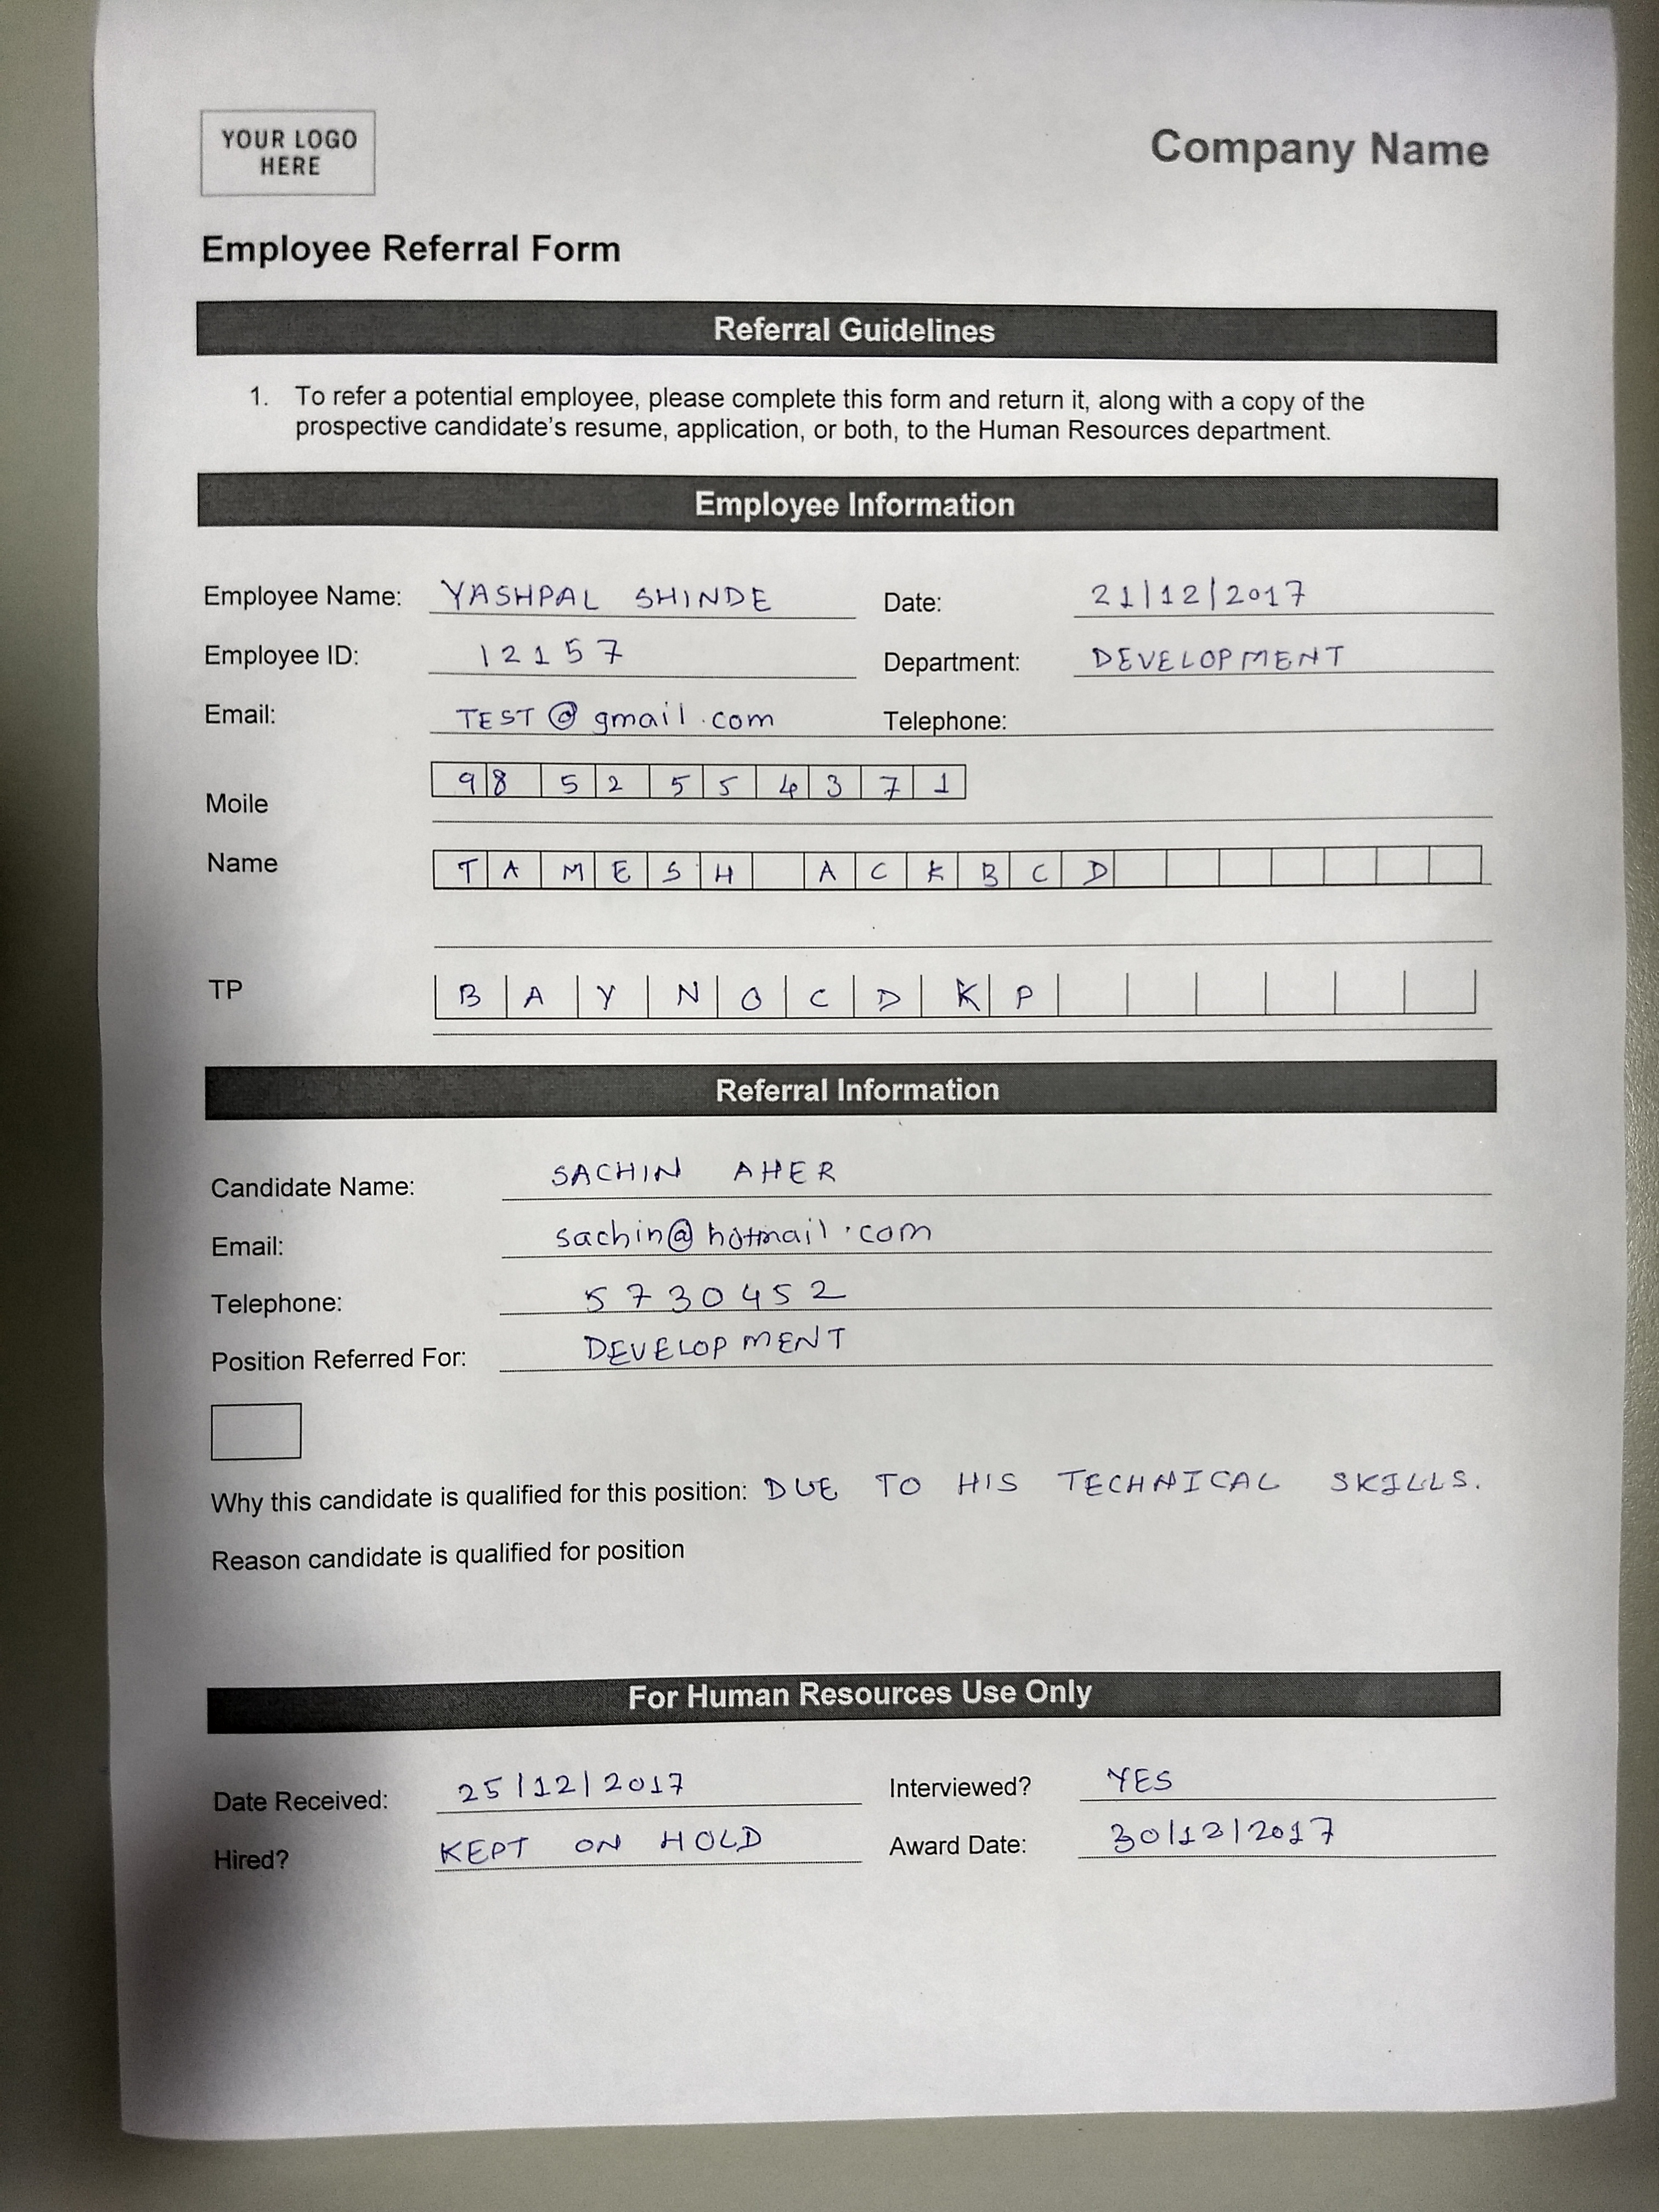 YOUR LOGO
HERE
Company Name
Employee Referral Form
Referral Guidelines
1. To refer a potential employee, please complete this form and return it, along with a copy of the
prospective candidate's resume, application, or both, to the Human Resources department.
Employee Information
Employee Name: YASHPAL SHINDE Date: 21/12/2017
Employee ID: 12157 Department: DEVELOPMENT
Email: TEST@gmail.com Telephone:
Moile 9852554371
Name TAMESH ACKBCD
TP BAYNOCDKP
Referral Information
Candidate Name: SACHIN AHER
Email: sachin@hotmail.com
Telephone: 5730452
Position Referred For: DEVELOPMENT
Why this candidate is qualified for this position: DUE TO HIS TECHNICAL SKILLS.
Reason candidate is qualified for position
For Human Resources Use Only
Date Received: 25/12/2017 Interviewed? YES
Hired? KEPT ON HOLD Award Date: 30/12/2017